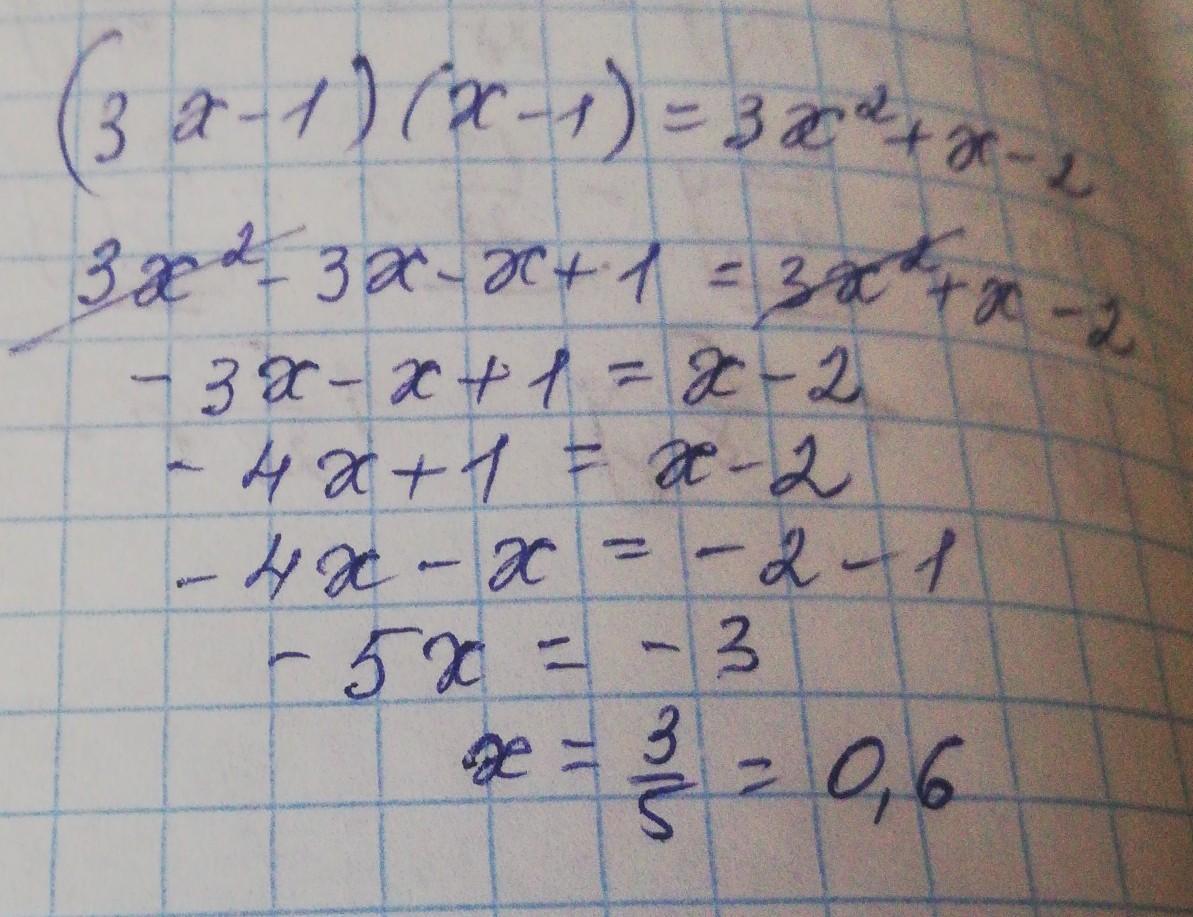 (3x-1)(x-1)=3x²+x-2
3x²-3x-x+1=3x²+x-2
-3x-x+1=x-2
-4x+1=x-2
-4x-x=-2-1
-5x=-3
x=3/5=0,6